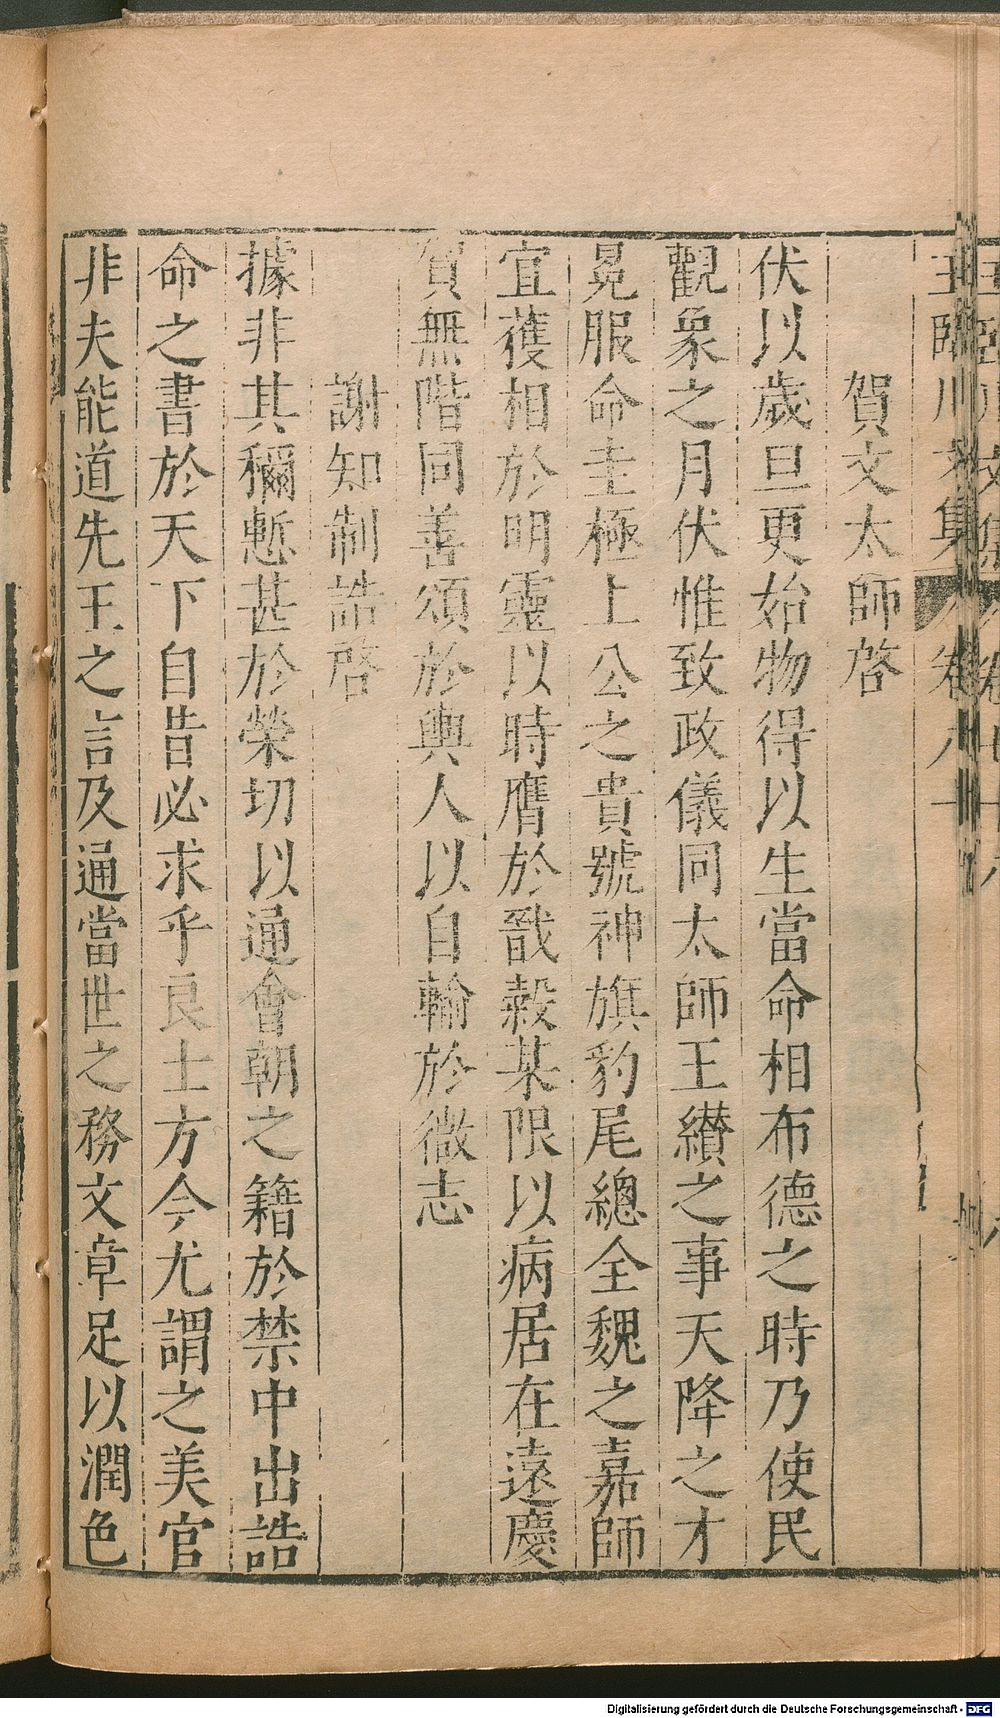 賀文太師啓
伏以歲旦更始物得以生當命相布德之時乃使民
觀象之月伏惟致政儀同太師王纘之事天降之才
冕服命圭極上公之貴號神旗豹尾總全魏之嘉師
宜獲相於明靈以時膺於戩榖某限以病居在遠慶
賀無階同善頌於輿人以自輸於微志
謝知制誥啓
據非其稱慙甚於榮切以通會朝之籍於禁中出誥
命之書於天下自昔必求乎良士方今尤謂之美官
非夫能道先王之言及通當世之務文章足以潤色
Digitalisierung gefördert durch die Deutsche Forschungsgemeinschaft - DFG